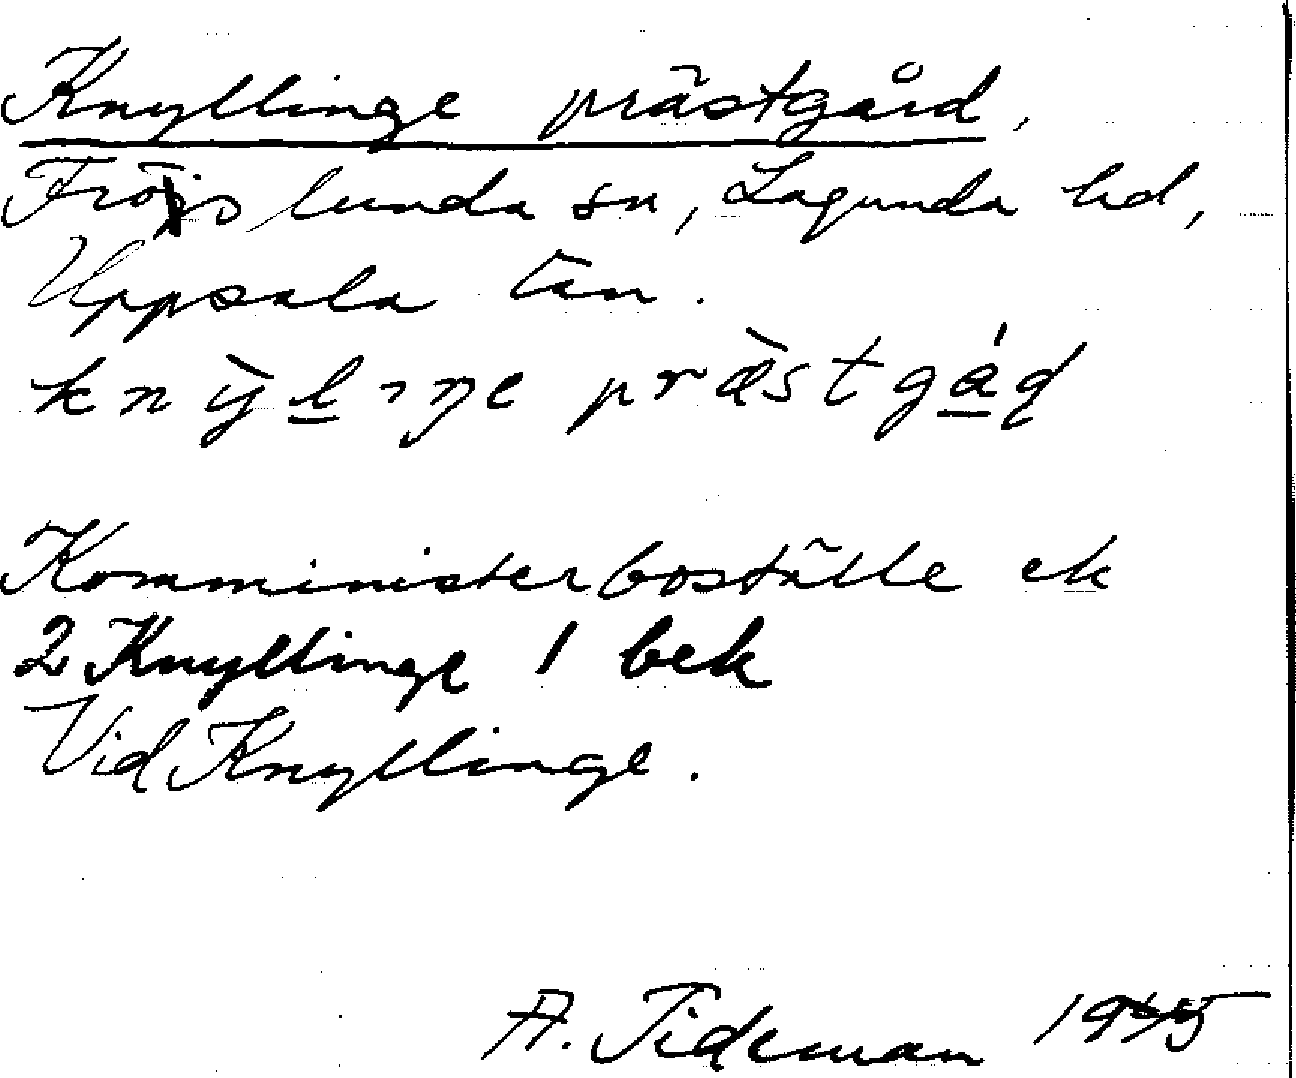 Knyllinge prästgård,
Frösslunda sn, Lagunda hd,
Uppsala län.
knỳl̲ɩŋe præ̀stgá̲ɖ
Komministerboställe ek
2 Knyllinge 1 bek
Vid Knyllinge.
A. Tideman 1945